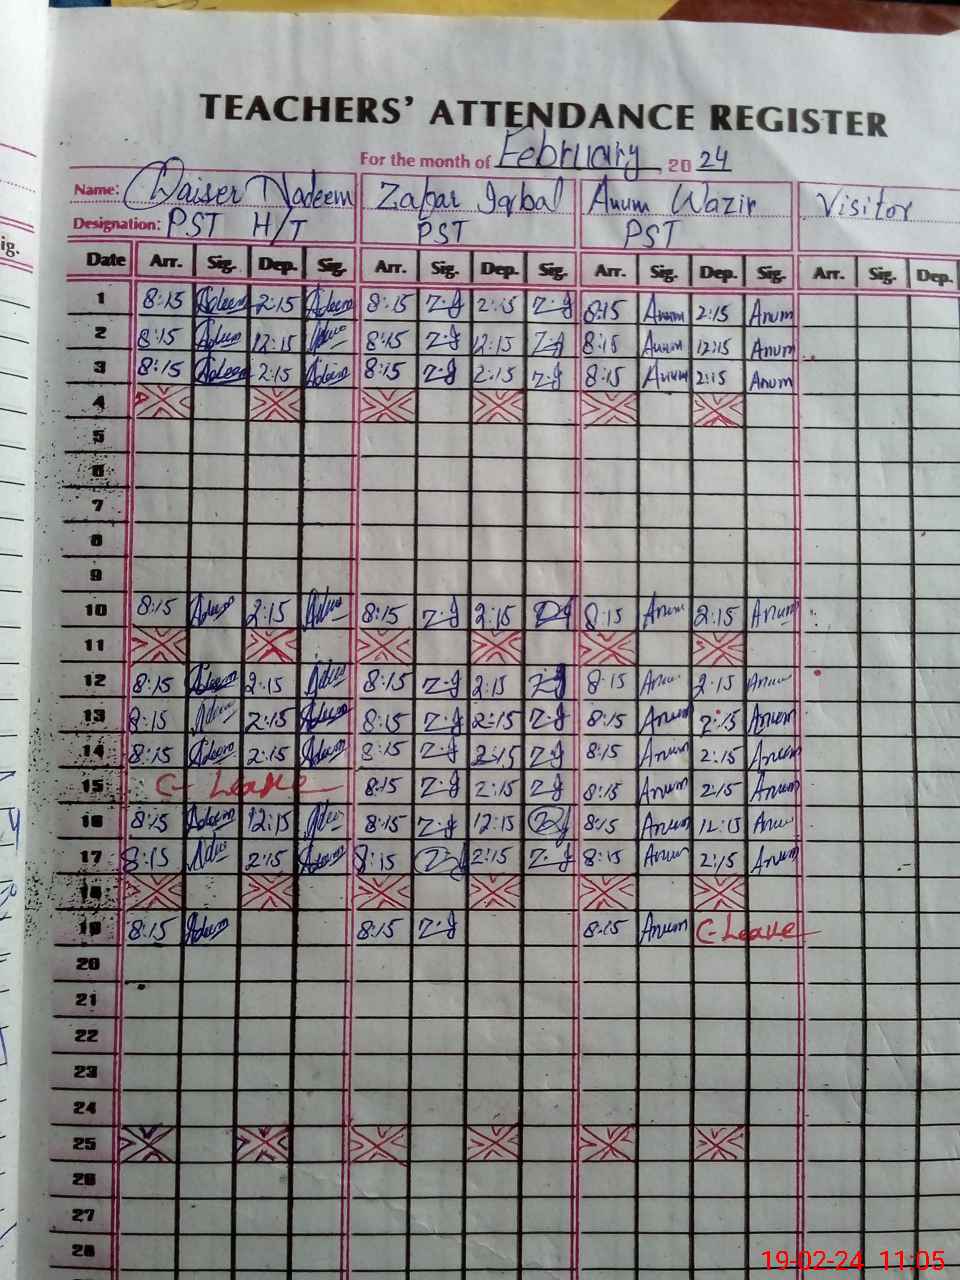 TEACHERS' ATTENDANCE REGISTER
For the month of February, 2024
Name: Qaiser Nadeem Zafar Iqbal Anum Wazir Visitor
Designation: PST H/T PST PST
ig.
Date Arr. Sig. Dep. Sig. Arr. Sig. Dep. Sig. Arr. Sig. Dep. Sig. Arr. Sig. Dep.
1 8:15 Adeem 2:15 Adeem 8:15 Z-J 2:15 Z-J 8:15 Anum 2:15 Anum
2 8:15 Adeem 12:15 8:15 Z-J 12:15 Z-J 8:15 Anum 12:15 Anum
3 8:15 Adeem 2:15 Adeem 8:15 Z-J 2:15 Z-J 8:15 Anum 2:15 Anum
4
5
6
7
8
9
10 8:15 Adeem 2:15 8:15 Z-J 2:15 8:15 Anum 2:15 Anum
11
12 8:15 Adeem 2:15 8:15 Z-J 2:15 Z-J 8:15 Anum 2:15 Anum
13 8:15 2:15 Adeem 8:15 Z-J 2:15 Z-J 8:15 Anum 2:15 Anum
14 8:15 Adeem 2:15 Adeem 8:15 Z-J 2:15 Z-J 8:15 Anum 2:15 Anum
15 C- Leave 8:15 Z-J 2:15 Z-J 8:15 Anum 2:15 Anum
16 8:15 Adeem 12:15 8:15 Z-J 12:15 8:15 Anum 12:15 Anum
17 8:15 2:15 Adeem 8:15 2:15 Z-J 8:15 Anum 2:15 Anum
18
19 8:15 Adeem 8:15 Z-J 8:15 Anum C-Leave
20
21
22
23
24
25
26
27
28
19-02-24 11:05